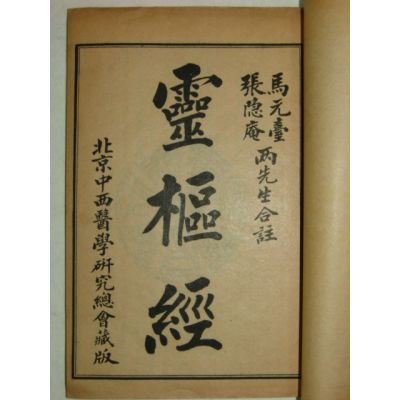 馬元臺
張隐庵
两先生合註
靈樞經
北京中西醫學研究總會藏版